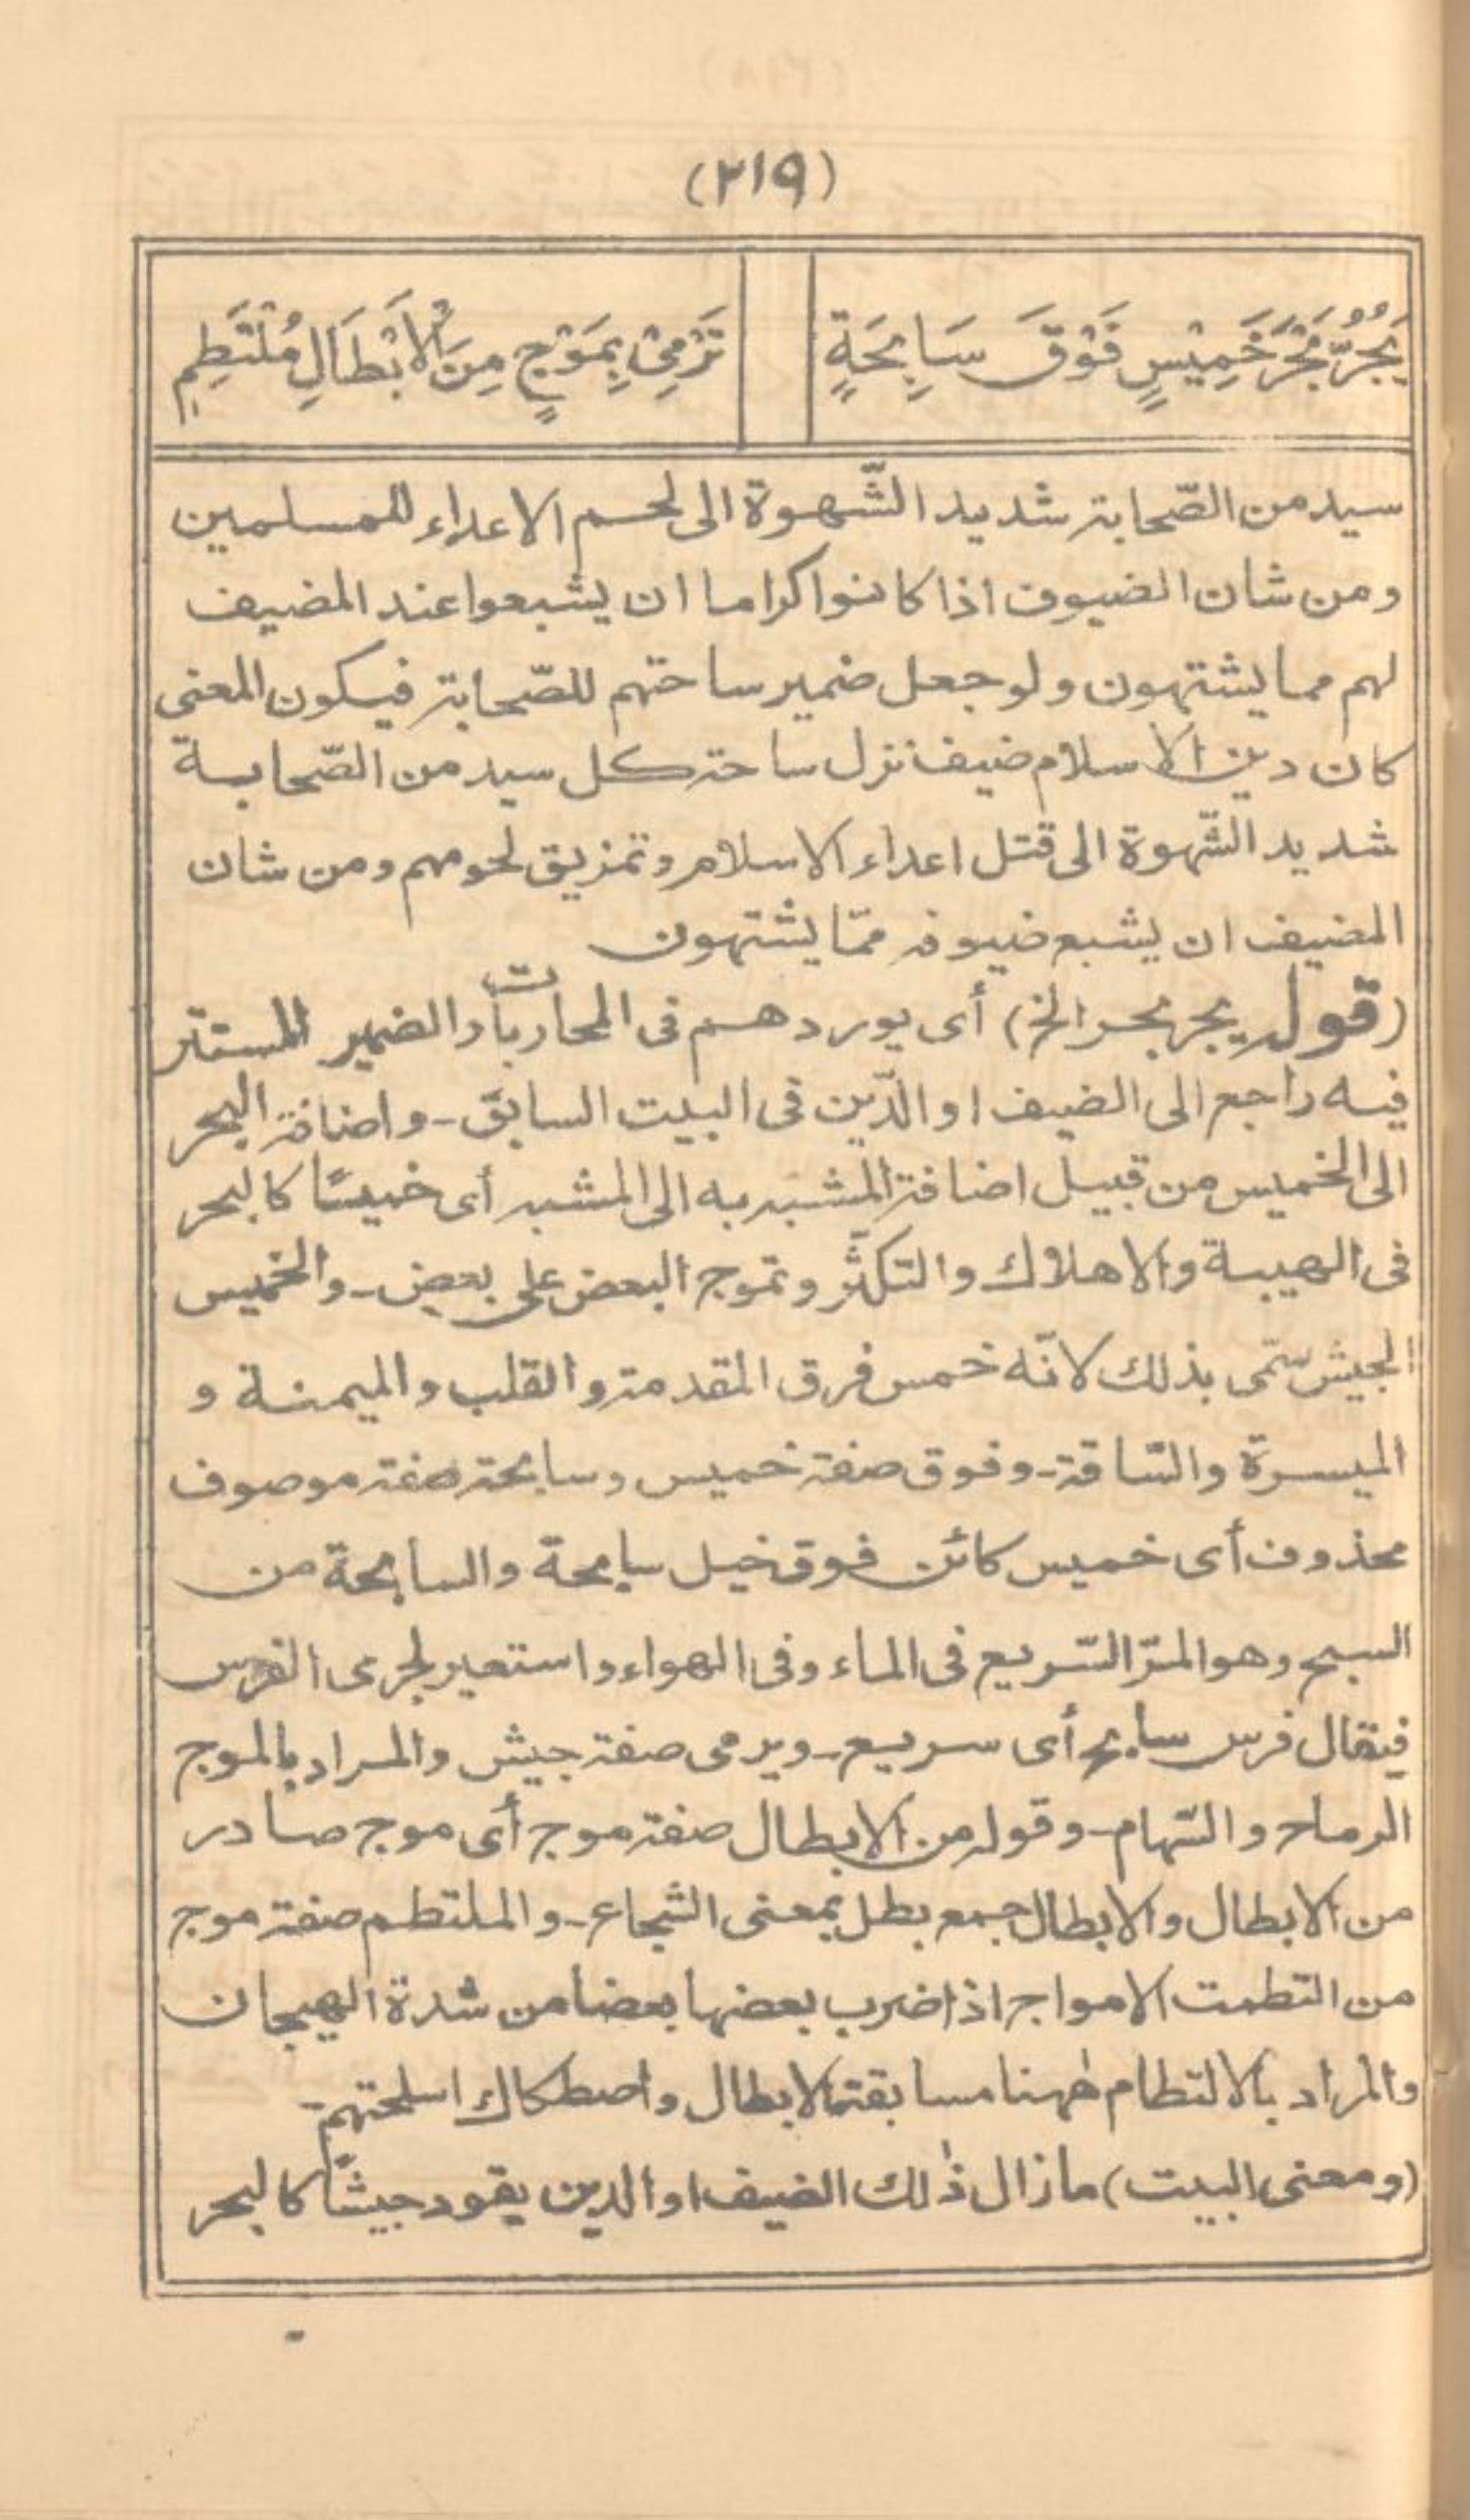 (٢١٩)
يَجُرُّ بَحْرَ خَمِيْسٍ فَوْقَ سَابِحَةٍ
تَرْمِىْ بِمَوْجٍ مِنَ الْاَبْطَالِ مُلْتَطِمٖ
سيد من الصّحابة شديد الشّهوة الى لحم الاعداء للمسلمين
ومن شان الضيوف اذا كانوا كراما ان يشبعوا عند المضيف
لهم مما يشتهون ولو جعل ضمير ساحتهم للصّحابة فيكون المعنى
كان دين الاسلام ضيف نزل ساحة كل سيد من الصّحابة
شديد الشّهوة الى قتل اعداء الاسلام وتمزيق لحومهم ومن شان
المضيف ان يشبع ضيوفه ممّا يشتهون
(قوله يجر بحر الخ) أى يوردهم فى المحاربات والضمير المستتر
فيه راجع الى الضيف او الدّين فى البيت السابق - واضافة البحر
الى الخميس من قبيل اضافة المشبه به الى المشبه أى خميسًا كالبحر
فى الهيبة والاهلاك والتكثّر وتموج البعض على بعض - والخميس
الجيش سّمى بذلك لانّه خمس فرق المقدمة والقلب والميمنة و
الميسرة والسّاقة - وفوق صفة خميس وسابحة صفة موصوف
محذوف أى خميس كائن فوق خيل سابحة والسابحة من
السبح وهو المرّ السّريع فى الماء وفى الهواء واستعير لجرى الفرس
فيقال فرس سابح أى سريع - ويرمى صفة جيش والمراد بالموج
الرماح والسّهام - وقوله من الابطال صفة موج أى موج صادر
من الابطال والابطال جمع بطل بمعنى الشجاع - والملتطم صفة موج
من التطمت الامواج اذا ضرب بعضها بعضا من شدة الهيجان
والمراد بالالتطام ههنا مسابقة الابطال واصطكاك اسلحتهم -
(ومعنى البيت) ما زال ذٰلك الضيف او الدين يقود جيشًا كالبحر